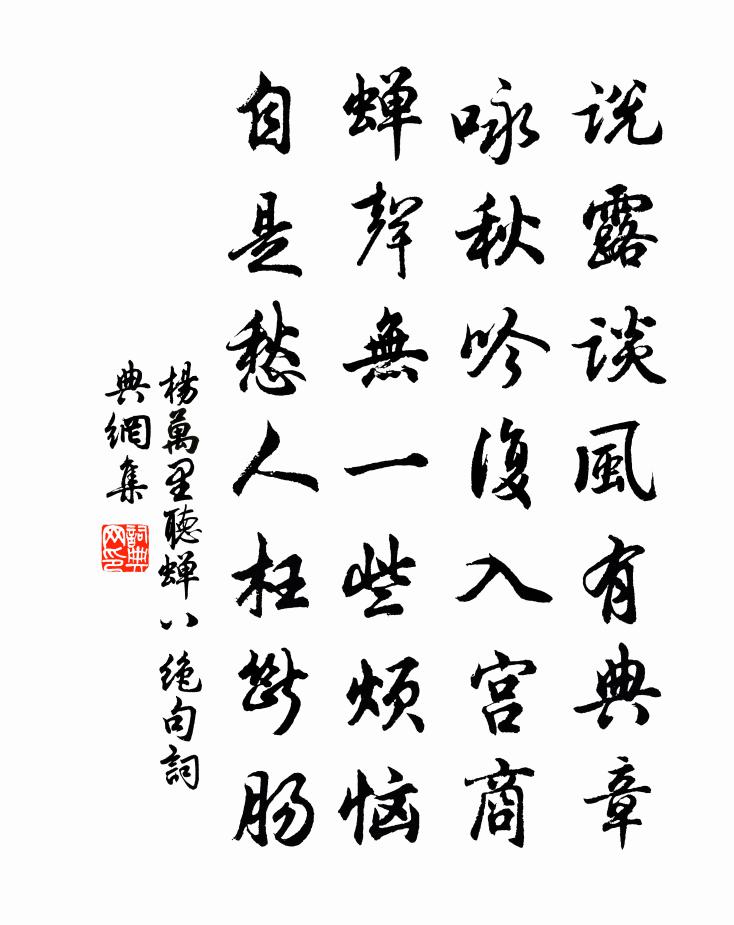 说露談風有典章
咏秋吟復入宫商
蝉聲無一些烦恼
自是愁人枉斷肠
楊萬里聽蝉八絶句詞
典網集
詞典
网印